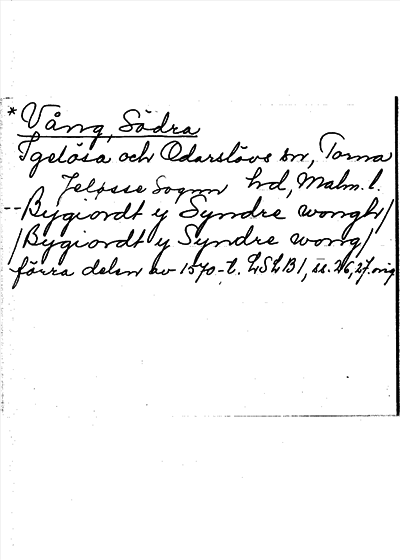 * Vång, Södra
Igelösa och Odarslövs snr, Torna
Jelösse Sognn hd, Malm. l.
-- Bygiordt y Syndre wongh/
/Bygiordt y Syndre wong/
förra delen av 1570-t. LSLB1, ss. 26, 27. orig